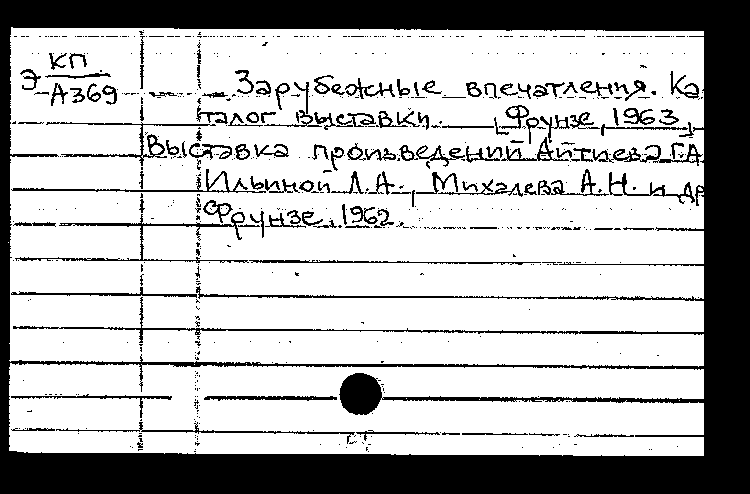 Э КП
А369
Зарубежные впечатления. Ка
талог выставки. [Фрунзе, 1963]
Выставка произведений Айтиева Г.А
Ильиной Л.А., Михалева А.Н. и др
Фрунзе, 1962.